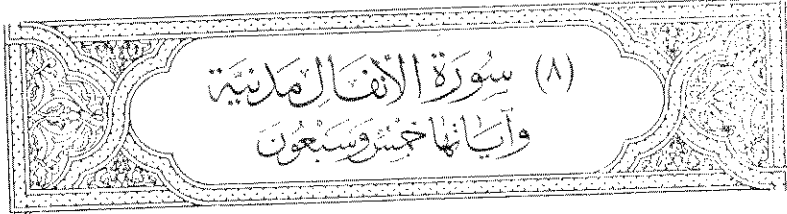 (٨) سُورَة الأنفَال مَدنيَّة
وآيَاتها خمْس وَسَبْعُونَ